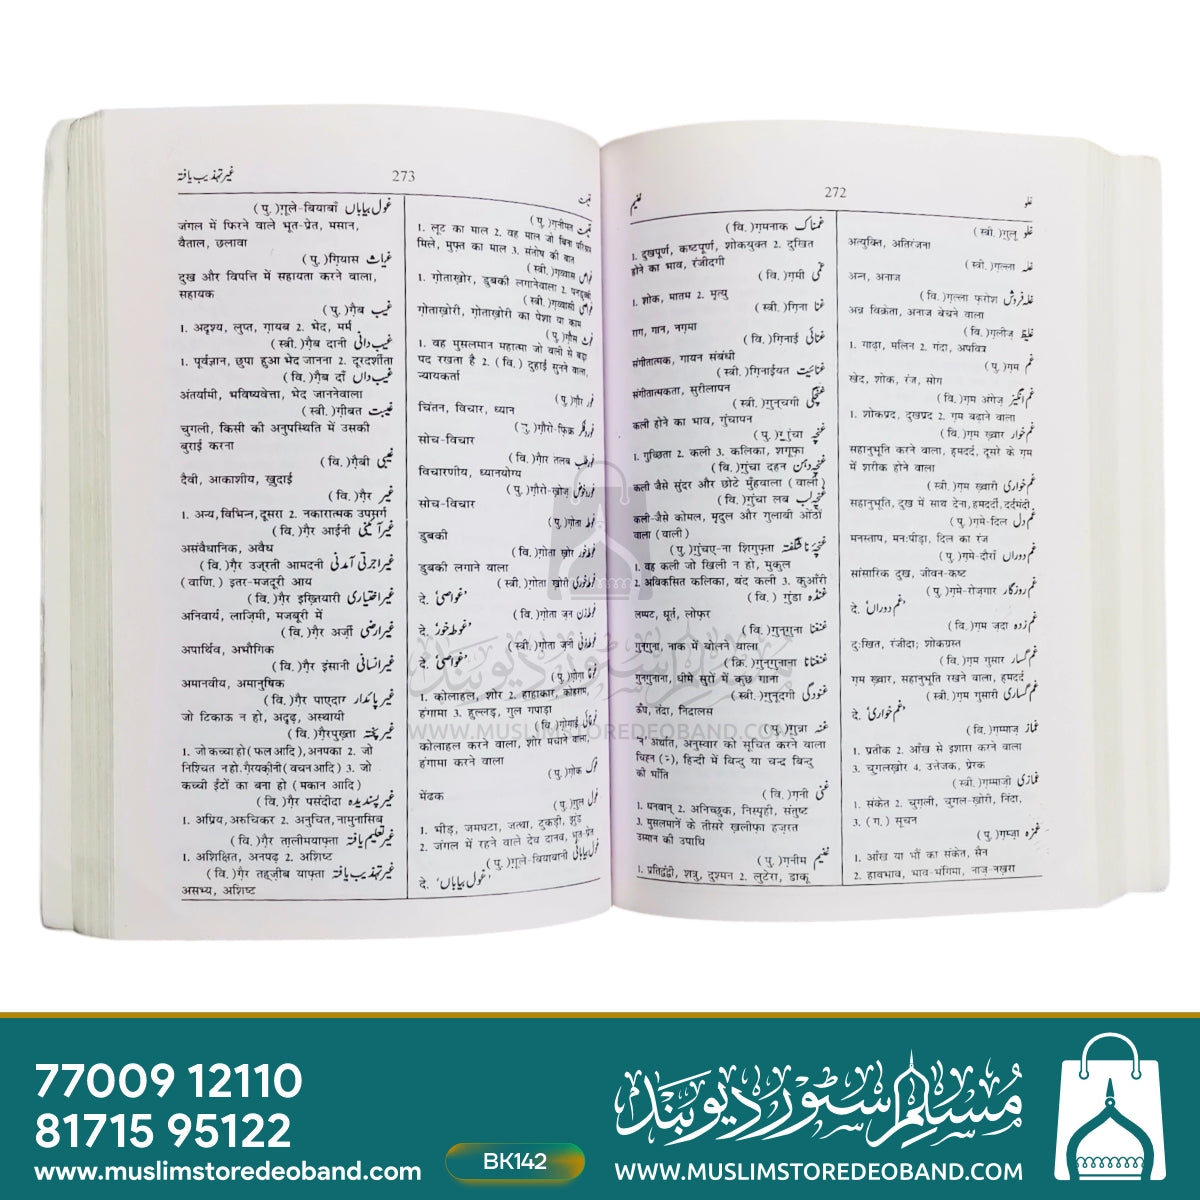 غلو
272
غنیم
(स्त्री.)गुलू غلو
अत्युक्ति, अतिरंजना
(स्त्री.)ग़ल्ला غلہ
अन्न, अनाज
(वि.)ग़ल्ला फ़रोश غلہ فروش
अन्न विक्रेता, अनाज बेचने वाला
(वि.)ग़लीज़ غلیظ
1. गाढ़ा, मलिन 2. गंदा, अपवित्र
(पु.)ग़म غم
खेद, शोक, रंज, सोग
(वि.)ग़म अंगेज़ غم انگیز
1. शोकप्रद, दुखप्रद 2. ग़म बढ़ाने वाला
(वि.)ग़म ख़्वार غم خوار
सहानुभूति करने वाला, हमदर्द, दूसरे के ग़म
में शरीक होने वाला
(स्त्री.)ग़म ख़्वारी غم خواری
सहानुभूति, दुख में साथ देना, हमदर्दी, दर्दमंदी
(पु.)ग़मे-दिल غم دل
मनस्ताप, मन:पीड़ा, दिल का रंज
(पु.)ग़मे-दौराँ غم دوراں
सांसारिक दुख, जीवन-कष्ट
(पु.)ग़मे-रोज़गार غم روزگار
दे. 'غم دوراں'
(वि.)ग़म ज़दा غم زدہ
दु:खित, रंजीदा; शोकग्रस्त
(वि.)ग़म गुसार غم گسار
ग़म ख़्वार, सहानुभूति रखने वाला, हमदर्द
(स्त्री.)ग़म गुसारी غم گساری
दे. 'غم خواری'
(वि.)ग़म्माज़ غماز
1. प्रतीक 2. आँख से इशारा करने वाला
3. चुगलख़ोर 4. उत्तेजक, प्रेरक
(स्त्री.)ग़म्माज़ी غمازی
1. संकेत 2. चुगली, चुगल-ख़ोरी, निंदा,
3. (ग.) सूचन
(पु.)ग़म्ज़ा غمزہ
1. आँख या भौं का संकेत, सैन
2. हावभाव, भाव-भंगिमा, नाज़-नख़रा
(वि.)ग़मनाक غمناک
1. दुखपूर्ण, कष्टपूर्ण, शोकयुक्त 2. दुखित
होने का भाव, रंजीदगी
(वि.)ग़मी غمی
1. शोक, मातम 2. मृत्यु
(स्त्री.)ग़िना غنا
राग, गान, नग़्मा
(वि.)ग़िनाई غنائی
संगीतात्मक, गायन संबंधी
(स्त्री.)ग़िनाईयत غنائیت
संगीतात्मकता, सुरीलापन
(स्त्री.)ग़ुन्चगी غنچگی
कली होने का भाव, गुंचापन
(पु.)ग़ुंचा غنچہ
1. गुच्छिता 2. कली 3. कलिका, शगूफ़ा
(वि.)ग़ुंचा दहन غنچہ دہن
कली जैसे सुंदर और छोटे मुँहवाला (वाली)
(वि.)ग़ुंचा लब غنچہ لب
कली-जैसे कोमल, मृदुल और गुलाबी ओंठों
वाला (वाली)
(पु.)ग़ुंचए-ना शिगुफ़्ता غنچۂ نا شگفتہ
1. वह कली जो खिली न हो, मुकुल
2. अविकसित कलिका, बंद कली 3. कुआँरी
(वि.) ग़ुंडा غنڈہ
लम्पट, धूर्त, लोफ़र
(वि.)ग़ुनग़ुना غنغنا
गुनगुना, नाक में बोलने वाला
(क्रि.)ग़ुनग़ुनाना غنغنانا
गुनगुनाना, धीमे सुरों में कुछ गाना
(स्त्री.)ग़ुनूदगी غنودگی
ऊँघ, तंद्रा, निद्रालस
(पु.)ग़ुन्ना غنہ
'न' अर्थात, अनुस्वार को सूचित करने वाला
चिह्न (ں), हिन्दी में बिन्दु या चन्द्र बिन्दु
की भाँति
(वि.)ग़नी غنی
1. धनवान् 2. अनिच्छुक, निस्पृही, संतुष्ट
3. मुसलमानों के तीसरे ख़लीफ़ा हज़रत
उस्मान की उपाधि
(पु.)ग़नीम غنیم
1. प्रतिद्वंद्वी, शत्रु, दुश्मन 2. लुटेरा, डाकू
273
غیر تہذیب یافتہ
(पु.)ग़नीमत
1. लूट का माल 2. वह माल जो बिना परिश्रम
मिले, मुफ़्त का माल 3. संतोष की बात
(स्त्री.)ग़व्वास غواص
1. ग़ोताख़ोर, डुबकी लगानेवाला 2. पनडुब्बी
(स्त्री.)ग़व्वासी غواصی
ग़ोताख़ोरी, ग़ोताख़ोरी का पेशा या काम
(पु.)ग़ौस غوث
1. वह मुसलमान महात्मा जो वली से बड़ा
पद रखता है 2. (वि.) दुहाई सुनने वाला,
न्यायकर्ता
(पु.)ग़ौर غور
चिंतन, विचार, ध्यान
(पु.)ग़ौरो-फ़िक्र غوروفکر
सोच-विचार
(वि.)ग़ौर तलब غور طلب
विचारणीय, ध्यानयोग्य
(पु.)ग़ौरो-ख़ौज़ غوروخوض
सोच-विचार
(पु.)ग़ोता غوطہ
डुबकी
(वि.)ग़ोता ख़ोर غوطہ خور
डुबकी लगाने वाला
(स्त्री.)ग़ोता ख़ोरी غوطہ خوری
दे. 'غواصی'
(वि.)ग़ोता ज़न غوطہ زن
दे. 'غوطہ خور'
(स्त्री.)ग़ोता ज़नी غوطہ زنی
दे. 'غواصی'
(पु.)ग़ोग़ा غوغا
1. कोलाहल, शोर 2. हाहाकार, कोहराम,
हंगामा 3. हुल्लड़, गुल गपाड़ा
(वि.)ग़ोग़ाई غوغائی
कोलाहल करने वाला, शोर मचाने वाला,
हंगामा करने वाला
(पु.)ग़ोक غوک
मेंढक
(पु.)ग़ूल غول
1. भीड़, जमघटा, जत्था, टुकड़ी, झुंड
2. जंगल में रहने वाले देव दानव, भूत-प्रेत
(पु.)ग़ूले-बियाबानी غول بیابانی
दे. 'غول بیاباں'
(पु.)ग़ूले-बियाबाँ غول بیاباں
जंगल में फिरने वाले भूत-प्रेत, मसान,
बैताल, छलावा
(पु.)ग़ियास غیاث
दुख और विपत्ति में सहायता करने वाला,
सहायक
(पु.)ग़ैब غیب
1. अदृश्य, लुप्त, ग़ायब 2. भेद, मर्म
(स्त्री.)ग़ैब दानी غیب دانی
1. पूर्वज्ञान, छुपा हुआ भेद जानना 2. दूरदर्शीता
(वि.)ग़ैब दाँ غیب داں
अंतर्यामी, भविष्यवेत्ता, भेद जाननेवाला
(स्त्री.)ग़ीबत غیبت
चुगली, किसी की अनुपस्थिति में उसकी
बुराई करना
(वि.)ग़ैबी غیبی
दैवी, आकाशीय, ख़ुदाई
(वि.)ग़ैर غیر
1. अन्य, विभिन्न, दूसरा 2. नकारात्मक उपसर्ग
(वि.)ग़ैर आईनी غیر آئینی
असंवैधानिक, अवैध
(वि.)ग़ैर उज्रती आमदनी غیر اجرتی آمدنی
(वाणि.) इतर-मजदूरी आय
(वि.)ग़ैर इख़्तियारी غیر اختیاری
अनिवार्य, लाज़िमी, मजबूरी में
(वि.)ग़ैर अर्ज़ी غیر ارضی
अपार्थिव, अभौगिक
(वि.)ग़ैर इंसानी غیر انسانی
अमानवीय, अमानुषिक
(वि.)ग़ैर पाएदार غیر پائدار
जो टिकाऊ न हो, अदृढ़, अस्थायी
(वि.)ग़ैरपुख़्ता غیر پختہ
1. जो कच्चा हो (फल आदि), अनपका 2. जो
निश्चित न हो, ग़ैरयक़ीनी (वचन आदि) 3. जो
कच्ची ईंटों का बना हो (मकान आदि)
(वि.)ग़ैर पसंदीदा غیر پسندیدہ
1. अप्रिय, अरुचिकर 2. अनुचित, नामुनासिब
(वि.)ग़ैर तालीमयाफ़्ता غیر تعلیم یافتہ
1. अशिक्षित, अनपढ़ 2. अशिष्ट
(वि.)ग़ैर तहज़ीब याफ़्ता غیر تہذیب یافتہ
असभ्य, अशिष्ट
مسلم سٹور دیوبند
WWW.MUSLIMSTOREDEOBAND.COM
77009 12110
81715 95122
www.muslimstoredeoband.com
BK142
مسلم سٹور دیوبند
WWW.MUSLIMSTOREDEOBAND.COM